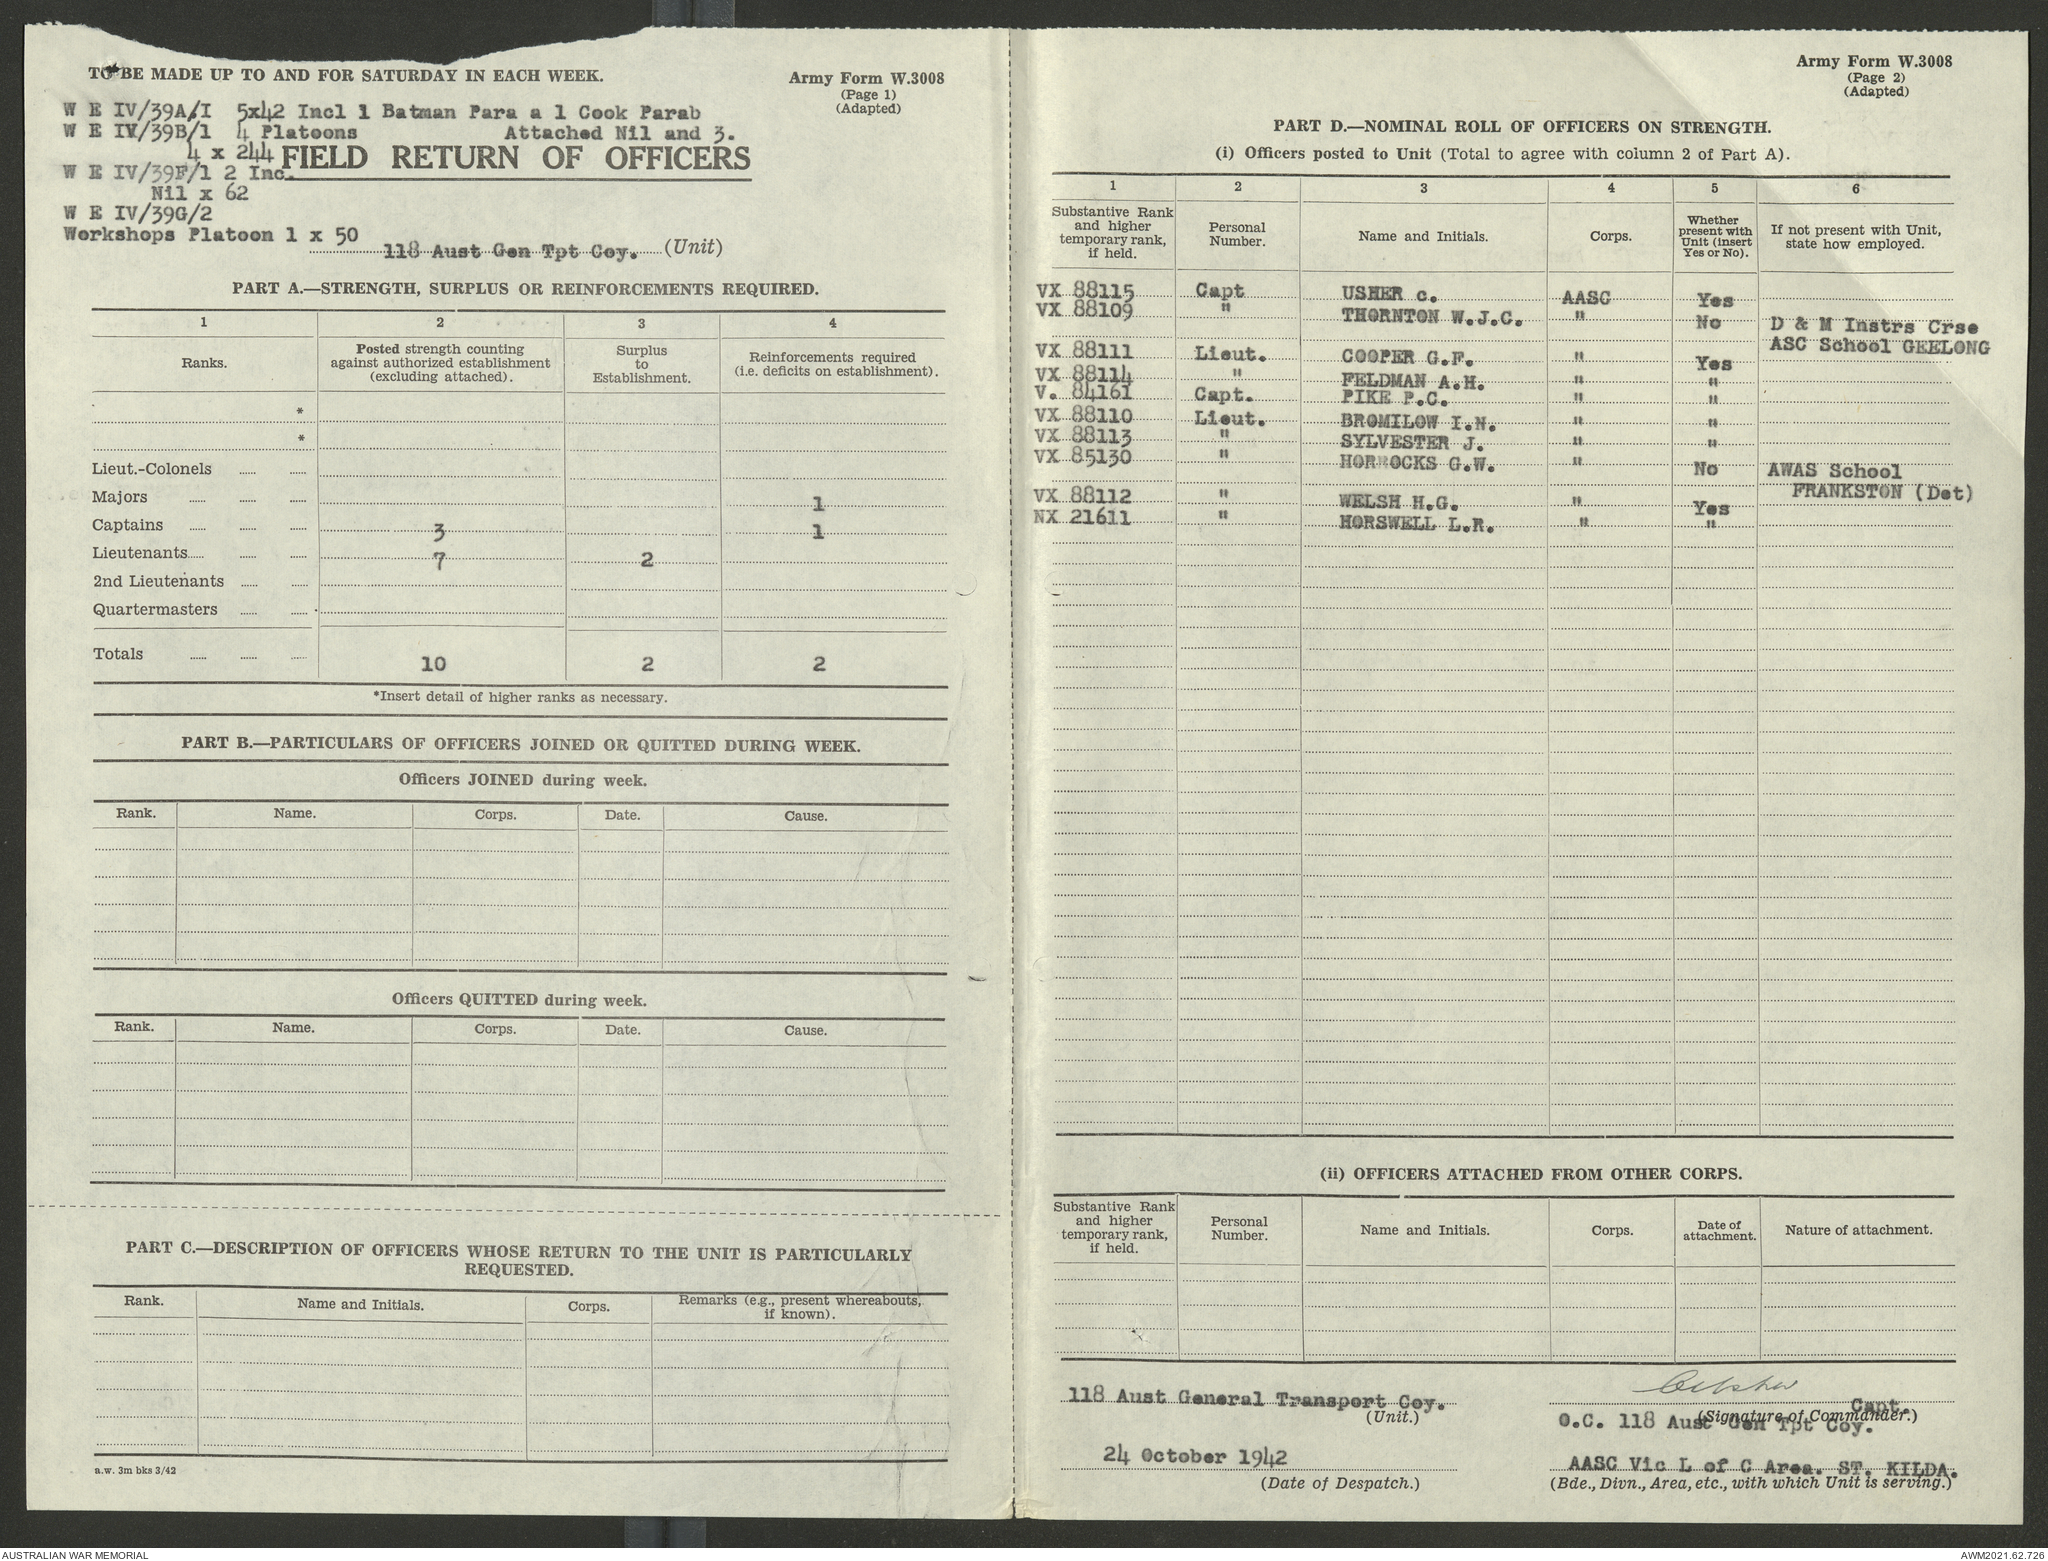 TO BE MADE UP TO AND FOR SATURDAY IN EACH WEEK.
Army Form W.3008
(Page 1)
(Adapted)
W E IV/39A/I 5x42 Incl 1 Batman Para a 1 Cook Parab
W E IV/39B/1 4 Platoons Attached Nil and 3.
4 x 244
FIELD RETURN OF OFFICERS
W E IV/39F/1 2 Inc.
Nil x 62
W E IV/39G/2
Workshops Platoon 1 x 50
118 Aust Gen Tpt Coy. (Unit)
PART A.—STRENGTH, SURPLUS OR REINFORCEMENTS REQUIRED.
1 2 3 4
Ranks.
Posted strength counting
against authorized establishment
(excluding attached).
Surplus
to
Establishment.
Reinforcements required
(i.e. deficits on establishment).
*
*
Lieut.-Colonels
Majors 1
Captains 3 1
Lieutenants 7 2
2nd Lieutenants
Quartermasters
Totals 10 2 2
*Insert detail of higher ranks as necessary.
PART B.—PARTICULARS OF OFFICERS JOINED OR QUITTED DURING WEEK.
Officers JOINED during week.
Rank. Name. Corps. Date. Cause.
Officers QUITTED during week.
Rank. Name. Corps. Date. Cause.
PART C.—DESCRIPTION OF OFFICERS WHOSE RETURN TO THE UNIT IS PARTICULARLY
REQUESTED.
Rank. Name and Initials. Corps. Remarks (e.g., present whereabouts,
if known).
a.w. 3m bks 3/42
Army Form W.3008
(Page 2)
(Adapted)
PART D.—NOMINAL ROLL OF OFFICERS ON STRENGTH.
(i) Officers posted to Unit (Total to agree with column 2 of Part A).
1 2 3 4 5 6
Substantive Rank
and higher
temporary rank,
if held.
Personal
Number.
Name and Initials.
Corps.
Whether
present with
Unit (insert
Yes or No).
If not present with Unit,
state how employed.
VX 88115 Capt USHER c. AASC Yes
VX 88109 " THORNTON W.J.C. " No D & M Instrs Crse
ASC School GEELONG
VX 88111 Lieut. COOPER G.F. " Yes
VX 88114 " FELDMAN A.H. " "
V. 84161 Capt. PIKE P.C. " "
VX 88110 Lieut. BROMILOW I.N. " "
VX 88113 " SYLVESTER J. " "
VX 85130 " HORROCKS G.W. " No AWAS School
FRANKSTON (Det)
VX 88112 " WELSH H.G. " Yes
NX 21611 " HORSWELL L.R. " "
(ii) OFFICERS ATTACHED FROM OTHER CORPS.
Substantive Rank
and higher
temporary rank,
if held.
Personal
Number.
Name and Initials.
Corps.
Date of
attachment.
Nature of attachment.
118 Aust General Transport Coy.
(Unit.)
24 October 1942
(Date of Despatch.)
CUsher
Capt.
(Signature of Commander.)
O.C. 118 Aust Gen Tpt Coy.
AASC Vic L of C Area. ST. KILDA.
(Bde., Divn., Area, etc., with which Unit is serving.)
AUSTRALIAN WAR MEMORIAL
AWM2021.62.726